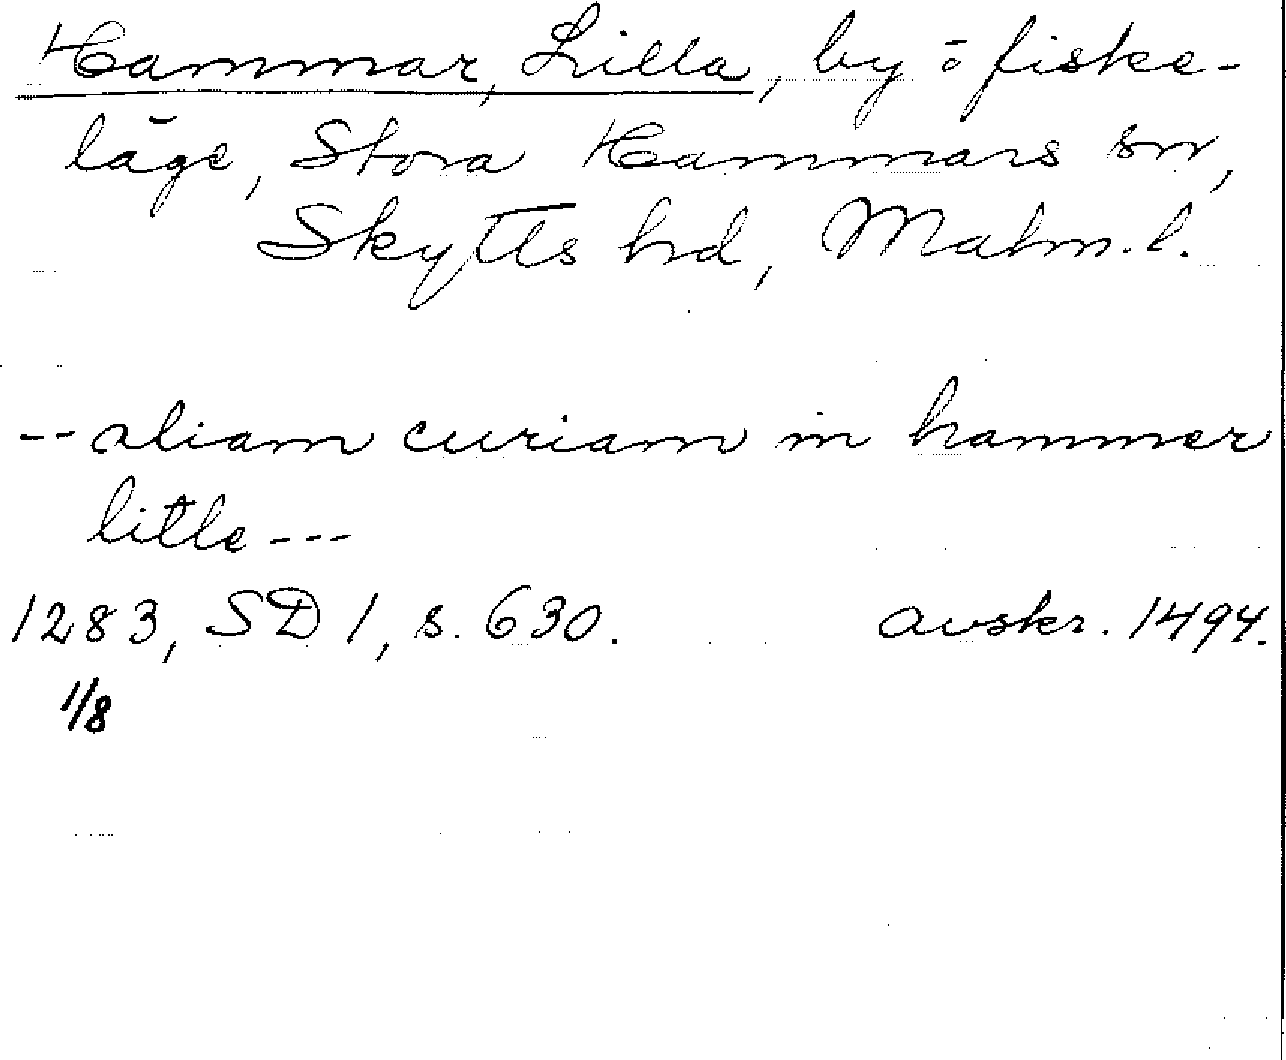 Hammar, Lilla, by o fiske-
läge, Stora Hammars sn,
Skytts hd, Malm. l.
-- aliam curiam in hammer
litle ---
1283, SD 1, s. 630. avskr. 1494.
1/8